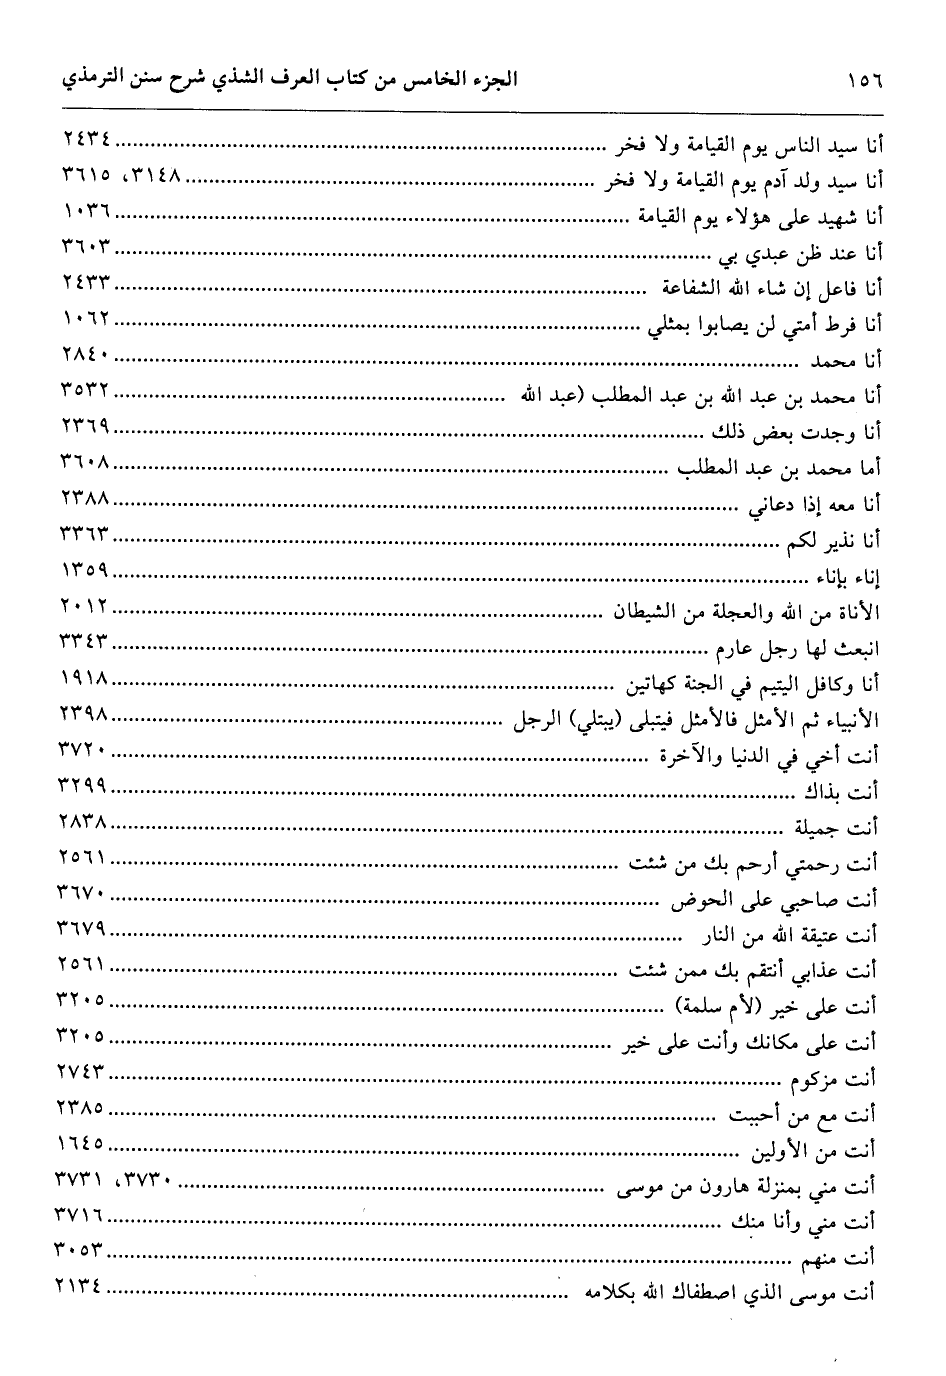 ١٥٦ الجزء الخامس من كتاب العرف الشذي شرح سنن الترمذي
أنا سيد الناس يوم القيامة ولا فخر ........ ٢٤٣٤
أنا سيد ولد آدم يوم القيامة ولا فخر ........ ٣١٤٨، ٣٦١٥
أنا شهيد على هؤلاء يوم القيامة ........ ١٠٣٦
أنا عند ظن عبدي بي ........ ٣٦٠٣
أنا فاعل إن شاء الله الشفاعة ........ ٢٤٣٣
أنا فرط أمتي لن يصابوا بمثلي ........ ١٠٦٢
أنا محمد ........ ٢٨٤٠
أنا محمد بن عبد الله بن عبد المطلب (عبد الله ........ ٣٥٣٢
أنا وجدت بعض ذلك ........ ٢٣٦٩
أما محمد بن عبد المطلب ........ ٣٦٠٨
أنا معه إذا دعاني ........ ٢٣٨٨
أنا نذير لكم ........ ٣٣٦٣
إناء بإناء ........ ١٣٥٩
الأناة من الله والعجلة من الشيطان ........ ٢٠١٢
انبعث لها رجل عارم ........ ٣٣٤٣
أنا وكافل اليتيم في الجنة كهاتين ........ ١٩١٨
الأنبياء ثم الأمثل فالأمثل فيتبلى (يبتلي) الرجل ........ ٢٣٩٨
أنت أخي في الدنيا والآخرة ........ ٣٧٢٠
أنت بذاك ........ ٣٢٩٩
أنت جميلة ........ ٢٨٣٨
أنت رحمتي أرحم بك من شئت ........ ٢٥٦١
أنت صاحبي على الحوض ........ ٣٦٧٠
أنت عتيقة الله من النار ........ ٣٦٧٩
أنت عذابي أنتقم بك ممن شئت ........ ٢٥٦١
أنت على خير (لأم سلمة) ........ ٣٢٠٥
أنت على مكانك وأنت على خير ........ ٣٢٠٥
أنت مزكوم ........ ٢٧٤٣
أنت مع من أحببت ........ ٢٣٨٥
أنت من الأولين ........ ١٦٤٥
أنت مني بمنزلة هارون من موسى ........ ٣٧٣٠، ٣٧٣١
أنت مني وأنا منك ........ ٣٧١٦
أنت منهم ........ ٣٠٥٣
أنت موسى الذي اصطفاك الله بكلامه ........ ٢١٣٤